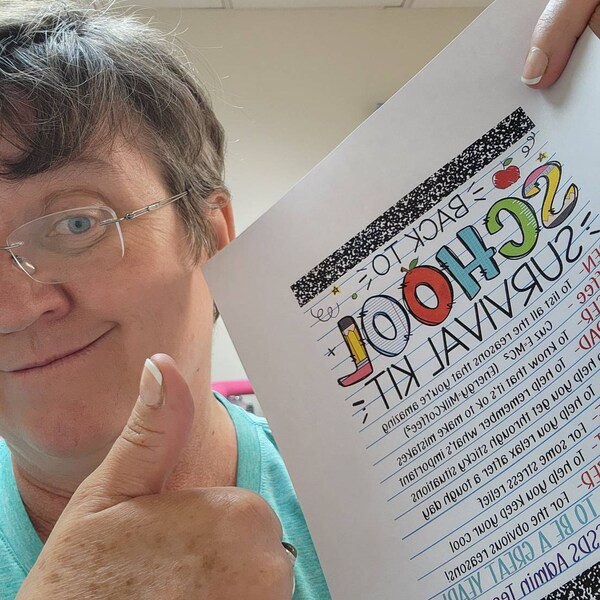 BACK TO
SCHOOL
SURVIVAL KIT
To list all the reasons that you're amazing
Cuz E=Mc² (Energy=MilkCoffee²)
To know that it's ok to make mistakes
To help you remember what's important
To help get through sticky situations
To help you relax after a tough day
For some stress relief
To help you keep your cool
For the obvious reasons!
TO BE A GREAT YEAR!
SSDS Admin